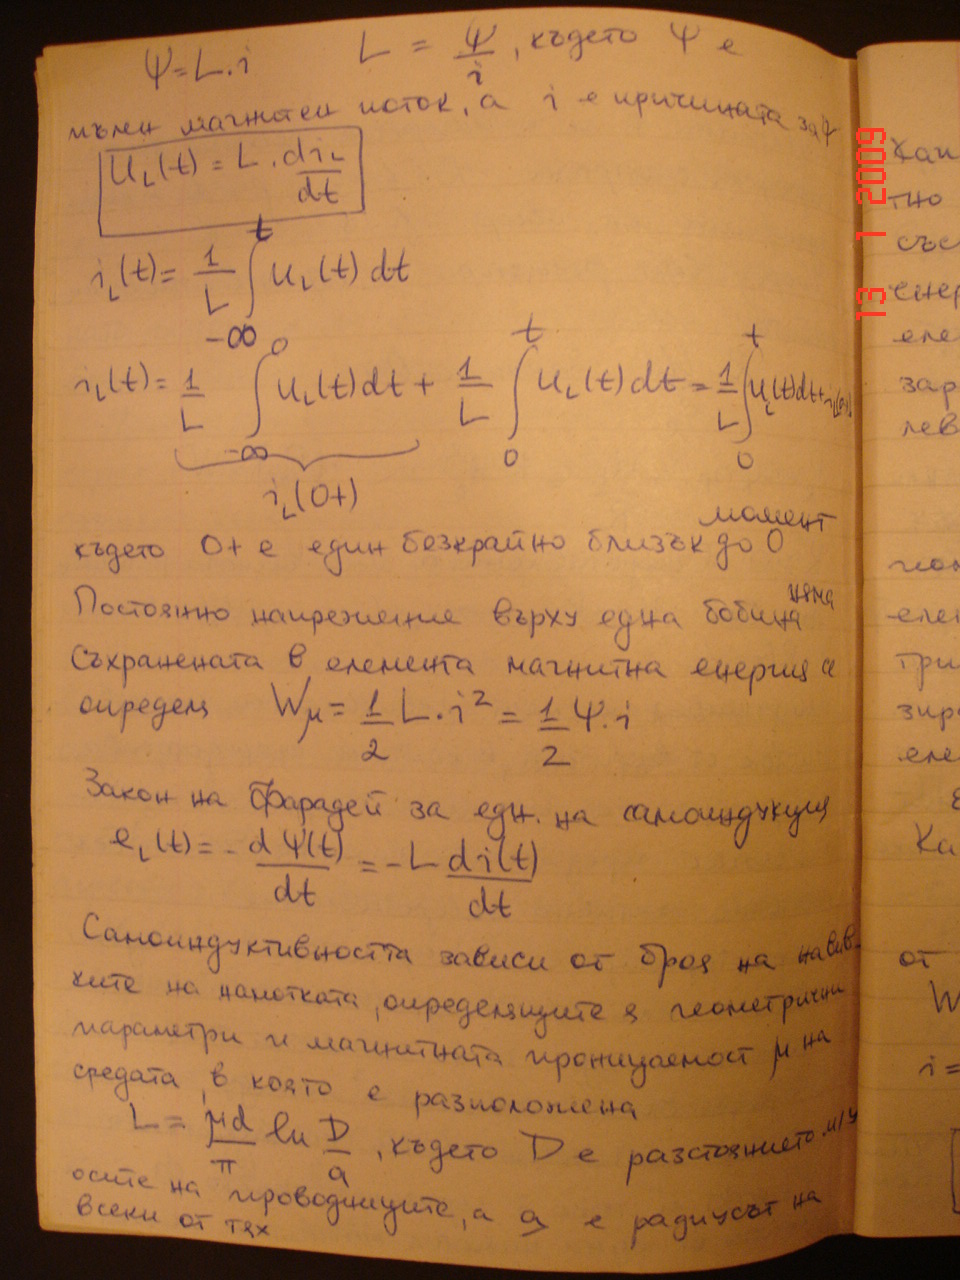 Ψ = L.i L = Ψ/i, където Ψ е
пълен магнитен поток, а i е причината за Ψ
u_L(t) = L . di_L/dt
i_L(t) = 1/L ∫_{-∞}^{t} u_L(t) dt
i_L(t) = 1/L ∫_{-∞}^{0} u_L(t) dt + 1/L ∫_{0}^{t} u_L(t) dt = 1/L ∫_{0}^{t} u_L(t) dt + i_L(0+)
i_L(0+)
момент
където 0+ е един безкрайно близък до 0
няма
Постоянно напрежение върху една бобина
Съхранената в елемента магнитна енергия се
определя W_μ = 1/2 L.i² = 1/2 Ψ.i
Закон на Фарадей за едн. на самоиндукция
e_L(t) = - dΨ(t)/dt = -L di(t)/dt
Самоиндуктивността зависи от броя на навив-
ките на намотката, определящите я геометрични
параметри и магнитната проницаемост μ на
средата, в която е разположена
L = μd/π ln D/a, където D е разстоянието м/у
осите на проводниците, а a е радиусът на
всеки от тях
13 1 2009
Кап
тно
със
енер
еле
зар
лев
елем
три
зир
еле
Ка
от
W
i =